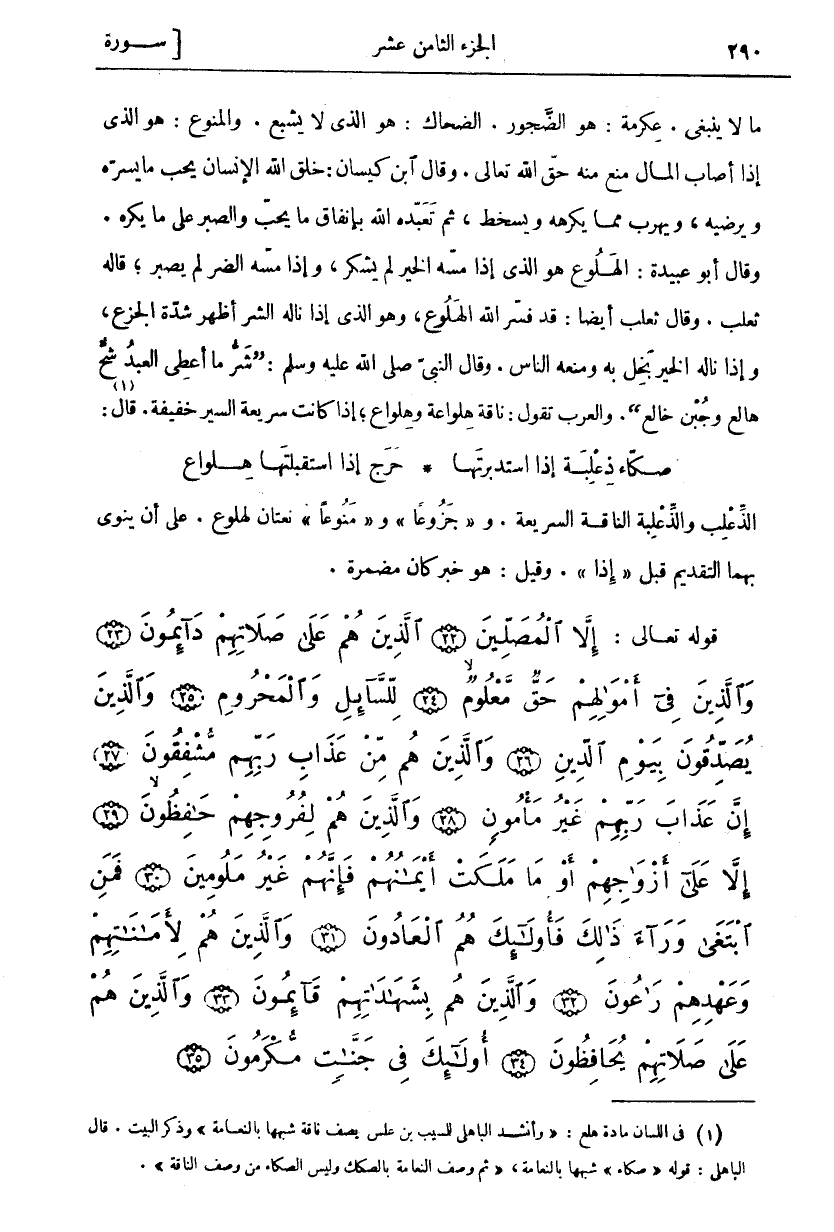 ٢٩٠ الجزء الثامن عشر [ ســورة
ما لا ينبغى . عِكرمة : هو الضَّجور . الضحاك : هو الذى لا يشبع . والمنوع : هو الذى
إذا أصاب المـال منع منه حقّ الله تعالى . وقال ٱبن كيسان : خلق الله الإنسان يحب ما يسرّه
و يرضيه ، ويهرب ممـا يكرهه ويسخط ، ثم تَعَبّده الله بإنفاق ما يحبّ والصبر على ما يكره .
وقال أبو عبيدة : الهَـلُوع هو الذى إذا مسّه الخير لم يشكر ، وإذا مسّه الضر لم يصبر ؛ قاله
ثعلب . وقال ثعلب أيضا : قد فسّر الله الهَلُوع، وهو الذى إذا ناله الشر أظهر شدّة الجزع ،
و إذا ناله الخير بَخِل به ومنعه الناس . وقال النبىّ صلى الله عليه وسلم : ”شَرُّ ما أُعطِى العبدُ شُحٌّ
هالع وجُبْن خالع“ . والعرب تقول : ناقة هِلواعة وهِلواع ؛ إذا كانت سريعة السير خفيفة . قال :(١)
صـكّاء ذِعْلِبَـة إذا استدبرتَهـا * حَرَج إذا استقبلتَهـا هِـلواع
الذِّعْلِب والذِّعْلِبة الناقـة السريعة . و « جَزُوعًا » و « مَنُوعاً » نعتان لهلوع . على أن ينوى
بهما التقديم قبل « إذا » . وقيل : هو خبر كان مضمرة .
قوله تعـالى : إِلَّا ٱلْمُصَلِّينَ ٢٢ ٱلَّذِينَ هُمْ عَلَىٰ صَلَاتِهِمْ دَآئِمُونَ ٢٣
وَٱلَّذِينَ فِىٓ أَمْوَٰلِهِمْ حَقٌّ مَّعْلُومٌ ٢٤ لِّلسَّآئِلِ وَٱلْمَحْرُومِ ٢٥ وَٱلَّذِينَ
يُصَدِّقُونَ بِيَوْمِ ٱلدِّينِ ٢٦ وَٱلَّذِينَ هُم مِّنْ عَذَابِ رَبِّهِم مُّشْفِقُونَ ٢٧
إِنَّ عَذَابَ رَبِّهِمْ غَيْرُ مَأْمُونٍ ٢٨ وَٱلَّذِينَ هُمْ لِفُرُوجِهِمْ حَـٰفِظُونَ ٢٩
إِلَّا عَلَىٰٓ أَزْوَٰجِهِمْ أَوْ مَا مَلَكَتْ أَيْمَـٰنُهُمْ فَإِنَّهُمْ غَيْرُ مَلُومِينَ ٣٠ فَمَنِ
ٱبْتَغَىٰ وَرَآءَ ذَٰلِكَ فَأُولَـٰٓئِكَ هُمُ ٱلْعَادُونَ ٣١ وَٱلَّذِينَ هُمْ لِأَمَـٰنَـٰتِهِمْ
وَعَهْدِهِمْ رَٰعُونَ ٣٢ وَٱلَّذِينَ هُم بِشَهَـٰدَٰتِهِمْ قَآئِمُونَ ٣٣ وَٱلَّذِينَ هُمْ
عَلَىٰ صَلَاتِهِمْ يُحَافِظُونَ ٣٤ أُولَـٰٓئِكَ فِى جَنَّـٰتٍ مُّكْرَمُونَ ٣٥
(١) فى اللسان مادة هلع : « وأنشـد الباهلى للسيب بن علس يصف ناقة شبهها بالنعـامة » وذكر البيت . قال
الباهلى : قوله « صكاء » شبهها بالنعامة ، « ثم وصف النعامة بالصكك وليس الصكاء من وصف الناقة » .